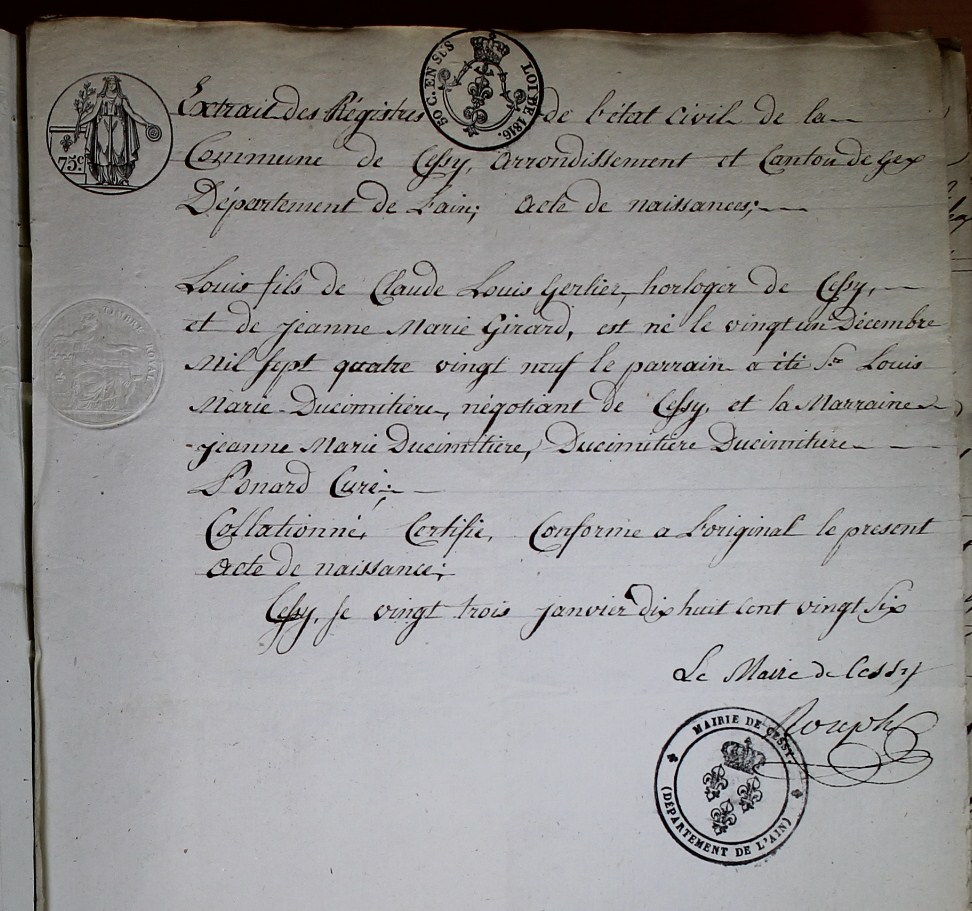 50 C. EN SUS
LOI DE 1816.
75c.
Extrait des Régistres de l'état civil de la
Commune de Cessy, arrondissement et Canton de Gex
Département de L'ain; acte de naissances;
Louis fils de Claude Louis Gerlier, horloger de Cessy,
et de jeanne Marie Girard, est né le vingt un Décembre
Mil sept quatre vingt neuf le parrain a été Sr Louis
Marie Ducimitière, négotiant de Cessy, et la Marraine
jeanne Marie Ducimitière, Ducimitière Ducimitiere
Ponard Curé;
Collationné, Certifié, Conforme a L'original le présent
acte de naissance;
Cessy, le vingt trois janvier dix huit cent vingt Six
Le Maire de Cessy
TIMBRE ROYAL
MAIRIE DE CESSY
(DÉPARTEMENT DE L'AIN)